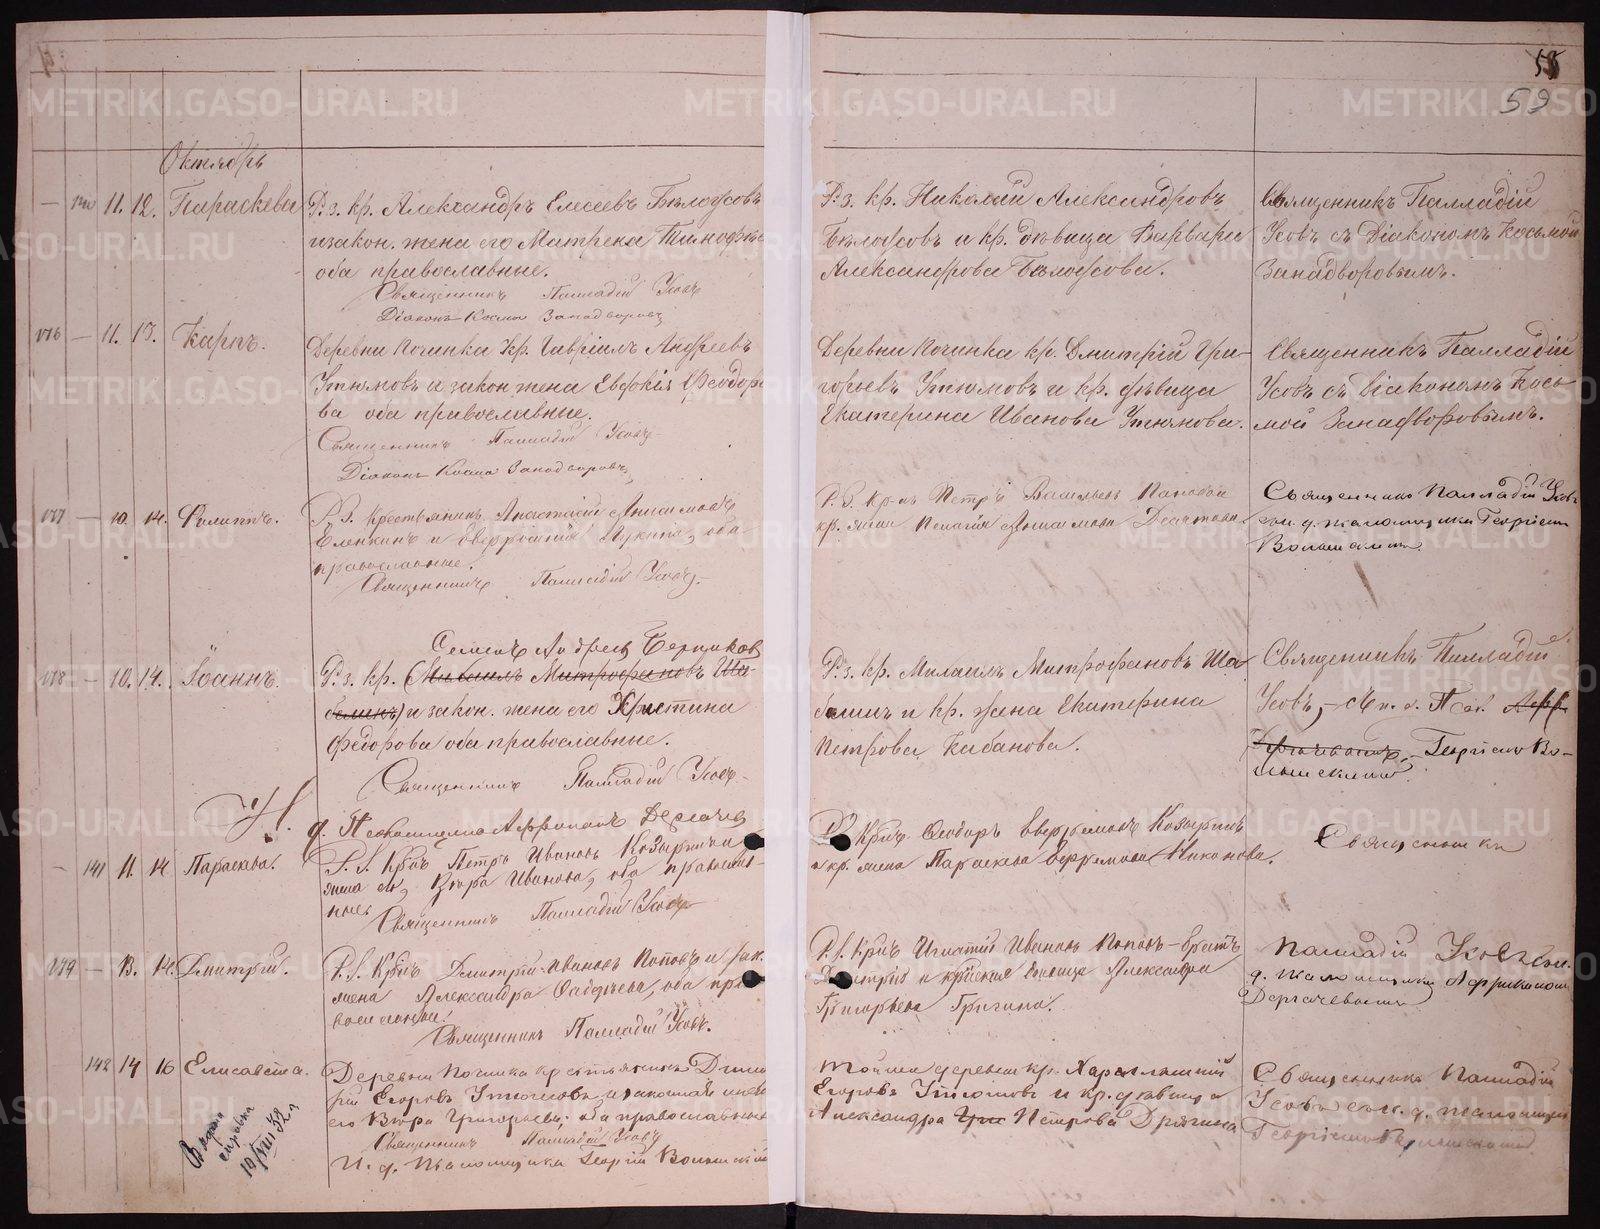 58
59
Октябрь
140 11. 12. Параскева
Р. з. кр. Александръ Елесеевъ Бѣлоусовъ
и закон. жена его Матрена Тимофѣе
оба православные.
Священникъ Палладій Усовъ
Діаконъ Косма Западворовъ
Р. з. кр. Николай Александровъ
Бѣлоусовъ и кр. дѣвица Варвара
Александрова Бѣлоусова.
Священникъ Палладій
Усовъ съ Діакономъ Косьмой
Западворовымъ.
176 — 11. 13. Карпъ.
Деревни Починка кр. Гавріилъ Андреевъ
Утюмовъ и закон. жена Евдокія Ѳеодоро
ва оба православные.
Священникъ Палладій Усовъ
Діаконъ Косма Западворовъ
Деревни Починка кр. Дмитрій Гри-
горьевъ Утюмовъ и кр. дѣвица
Екатерина Иванова Утюмова.
Священникъ Палладій
Усовъ съ Діакономъ Кось
мой Западворовымъ.
177 — 10. 14. Филиппъ.
Р. З. крестьянинъ Анастасій
и Лукина, оба
православные.
Священникъ Палладій Усовъ.
Р. З. кр-нъ Петръ Васильевъ
кр. жена Пелагія
Священникъ Палладій Усовъ
и. д. псаломщика Георгіем
Волынскимъ.
Семенъ Андреев Берников
178 — 10. 14. Іоаннъ.
Р. з. кр. (Михаилъ Митрофановъ Ша-
балинъ) и закон. жена его Христина
Федорова оба православные.
Священникъ Палладій Усовъ
Р. з. кр. Михаилъ Митрофановъ Ша
балинъ и кр. жена Екатерина
Петрова Кабанова.
Священникъ Палладій
Усовъ, съ и. д. Псал.
Георгіемъ Во-
лынскимъ
И. д. Псаломщика Аффриканъ Дергачев
— 141 11. 14. Параскева.
Р. З. Кр-нъ Петръ Ивановъ Козыркинъ
жена его, Вѣра Иванова, оба православ-
ные
Священникъ Палладій Усовъ
Р. З. Кр-нъ Ѳеодоръ Козыркинъ
и кр. жена Параскева Никонова.
Священникъ
179 — 13. 14. Дмитрій.
Р. З. Кр-нъ Дмитрій Ивановъ Поповъ и зак.
жена Александра Фаддѣева, оба пра
вославные.
Священникъ Палладій Усовъ.
Р. З. Кр-нъ Игнатій Ивановъ Поповъ — братъ
Дмитрія и крестьянская дѣвица Александра
Григорьева
Палладій Усовъ и.
д. псаломщика Аффриканом
Дергачевымъ
142 14 16 Елисавета.
Деревни Починка крестьянинъ Дмит
рій Егоровъ Утюмовъ и законная жена
его Вѣра Григорьева; оба православные
Священникъ Палладій Усовъ
И. д. Псаломщика Георгій Волынскій
Той же деревни кр. Харлампій
Егоровъ Утюмовъ и кр. дѣвица
Александра Гри Петрова
Священникъ Палладій
Усовъ и. д. псаломщика
Георгіемъ Волынскимъ
Выдана
справка
10/VIII 32 г
METRIKI.GASO-URAL.RU